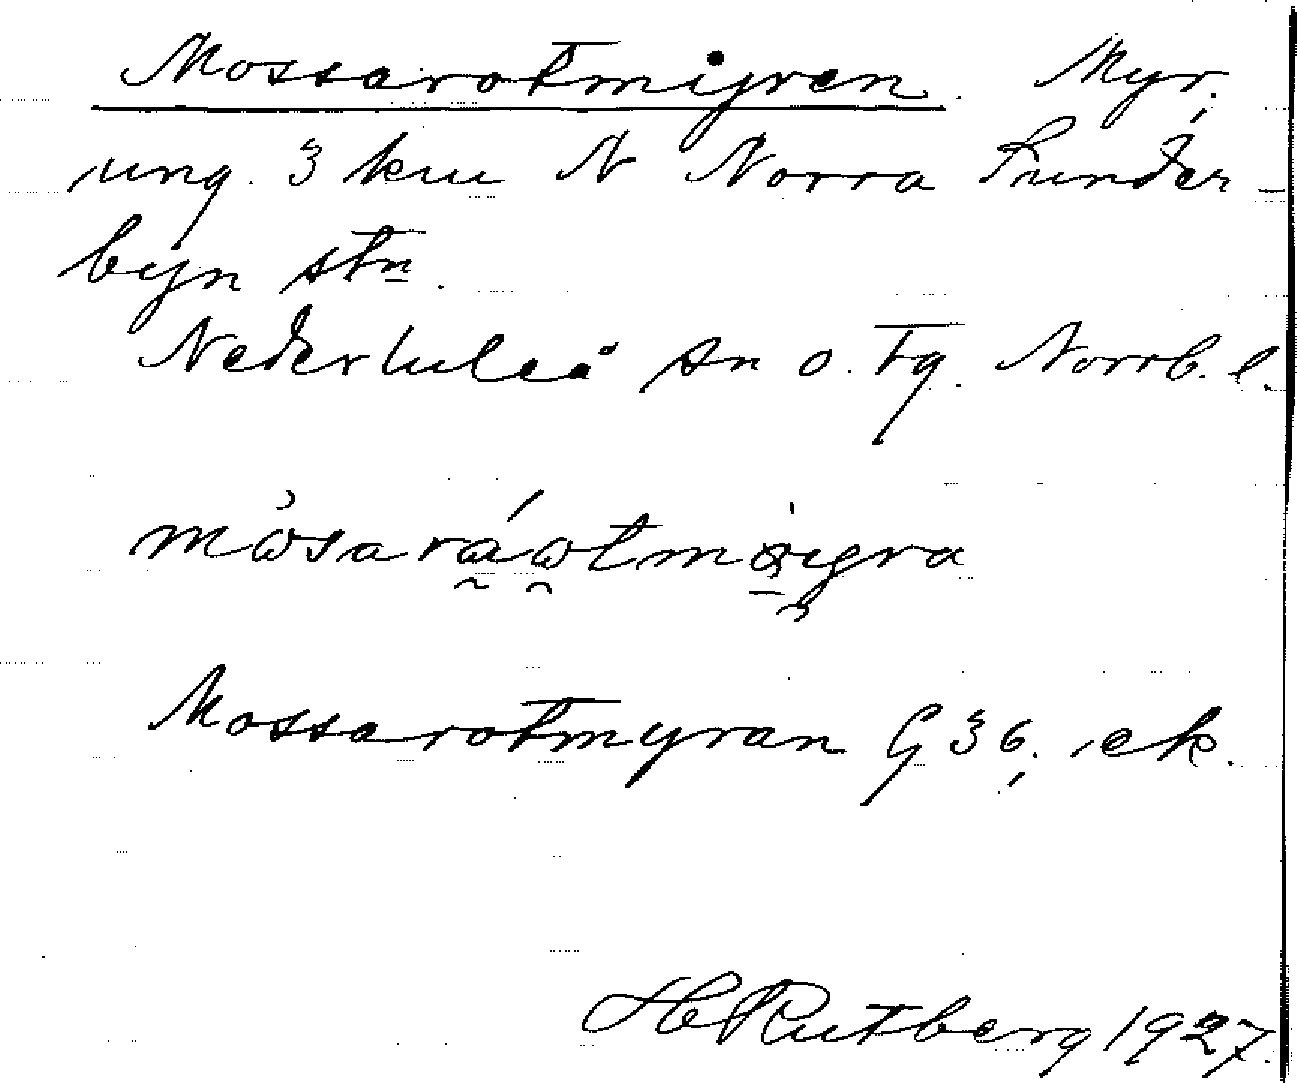 Mossarotmyren. Myr.
ung. 3 km N Norra Sunder-
byn stn.
Nederluleå sn o. tg. Norrb. l.
Mossarotmyran G 36, ek.
H Rutberg 1927.